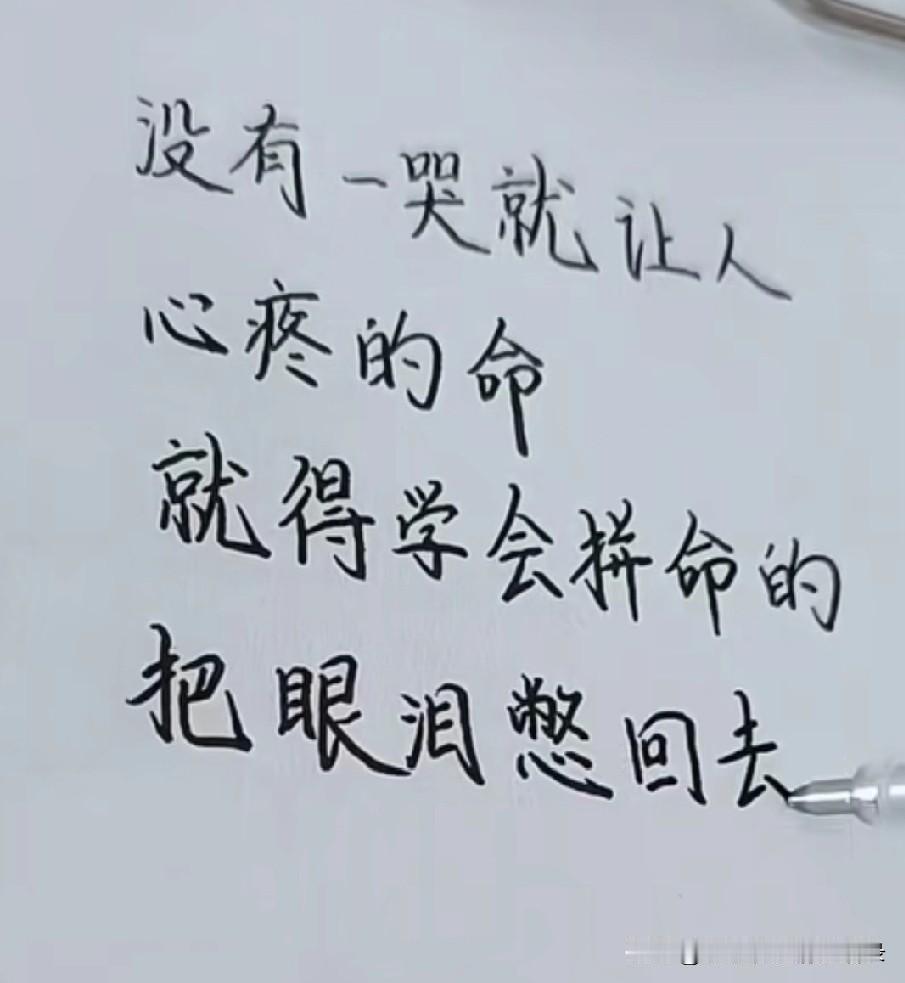 没有一哭就让人
心疼的命
就得学会拼命的
把眼泪憋回去